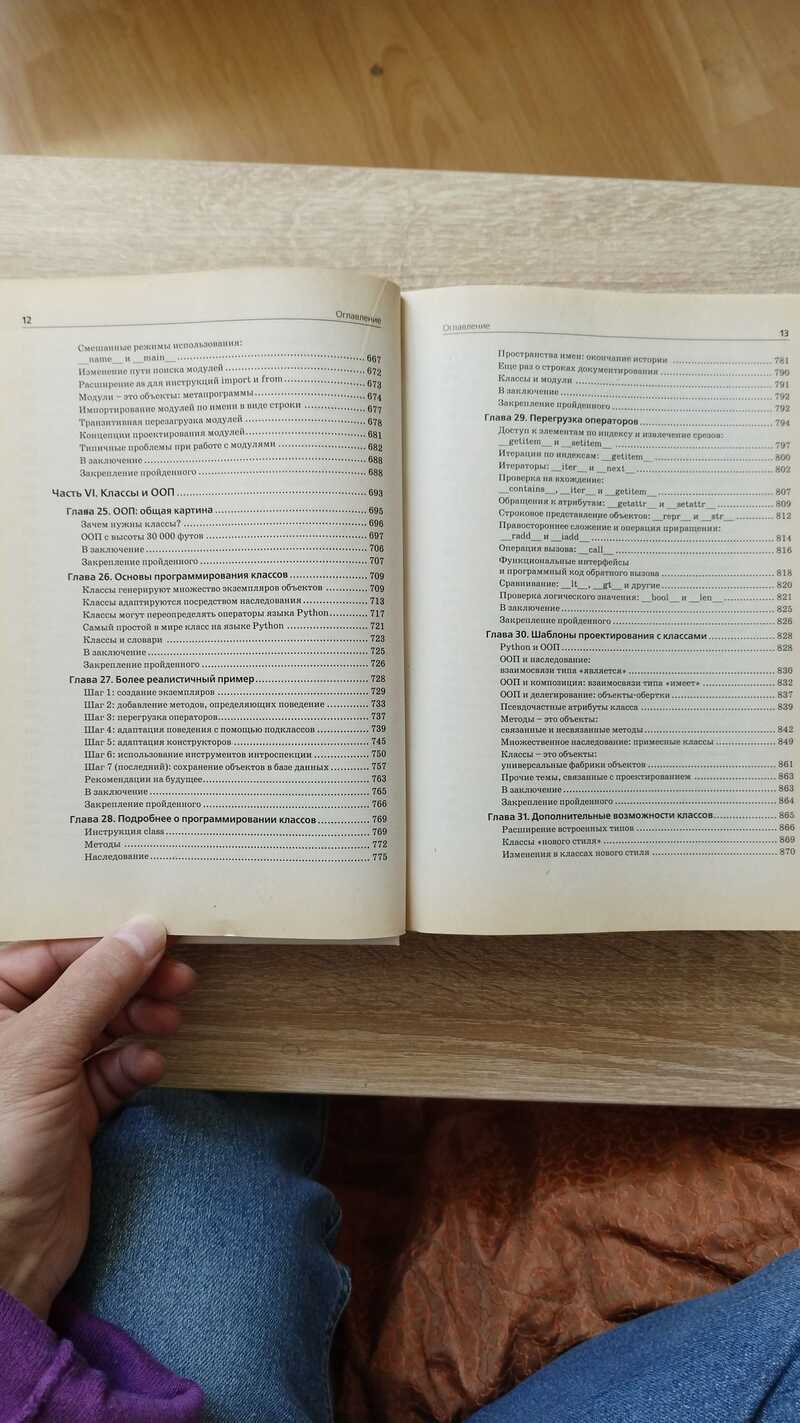 12
Оглавление
Смешанные режимы использования:
__name__ и __main__ 667
Изменение пути поиска модулей 672
Расширение as для инструкций import и from 673
Модули – это объекты: метапрограммы 674
Импортирование модулей по имени в виде строки 677
Транзитивная перезагрузка модулей 678
Концепции проектирования модулей 681
Типичные проблемы при работе с модулями 682
В заключение 688
Закрепление пройденного 688
Часть VI. Классы и ООП 693
Глава 25. ООП: общая картина 695
Зачем нужны классы? 696
ООП с высоты 30 000 футов 697
В заключение 706
Закрепление пройденного 707
Глава 26. Основы программирования классов 709
Классы генерируют множество экземпляров объектов 709
Классы адаптируются посредством наследования 713
Классы могут переопределять операторы языка Python 717
Самый простой в мире класс на языке Python 721
Классы и словари 723
В заключение 725
Закрепление пройденного 726
Глава 27. Более реалистичный пример 728
Шаг 1: создание экземпляров 729
Шаг 2: добавление методов, определяющих поведение 733
Шаг 3: перегрузка операторов 737
Шаг 4: адаптация поведения с помощью подклассов 739
Шаг 5: адаптация конструкторов 745
Шаг 6: использование инструментов интроспекции 750
Шаг 7 (последний): сохранение объектов в базе данных 757
Рекомендации на будущее 763
В заключение 765
Закрепление пройденного 766
Глава 28. Подробнее о программировании классов 769
Инструкция class 769
Методы 772
Наследование 775
Оглавление
13
Пространства имен: окончание истории 781
Еще раз о строках документирования 790
Классы и модули 791
В заключение 792
Закрепление пройденного 792
Глава 29. Перегрузка операторов 794
Доступ к элементам по индексу и извлечение срезов:
__getitem__ и __setitem__ 797
Итерации по индексам: __getitem__ 800
Итераторы: __iter__ и __next__ 802
Проверка на вхождение:
__contains__, __iter__ и __getitem__ 807
Обращения к атрибутам: __getattr__ и __setattr__ 809
Строковое представление объектов: __repr__ и __str__ 812
Правостороннее сложение и операция приращения:
__radd__ и __iadd__ 814
Операция вызова: __call__ 816
Функциональные интерфейсы
и программный код обратного вызова 818
Сравнивание: __lt__, __gt__ и другие 820
Проверка логического значения: __bool__ и __len__ 821
В заключение 825
Закрепление пройденного 826
Глава 30. Шаблоны проектирования с классами 828
Python и ООП 828
ООП и наследование:
взаимосвязи типа «является» 830
ООП и композиция: взаимосвязи типа «имеет» 832
ООП и делегирование: объекты-обертки 837
Псевдочастные атрибуты класса 839
Методы – это объекты:
связанные и несвязанные методы 842
Множественное наследование: примесные классы 849
Классы – это объекты:
универсальные фабрики объектов 861
Прочие темы, связанные с проектированием 863
В заключение 863
Закрепление пройденного 864
Глава 31. Дополнительные возможности классов 865
Расширение встроенных типов 866
Классы «нового стиля» 869
Изменения в классах нового стиля 870